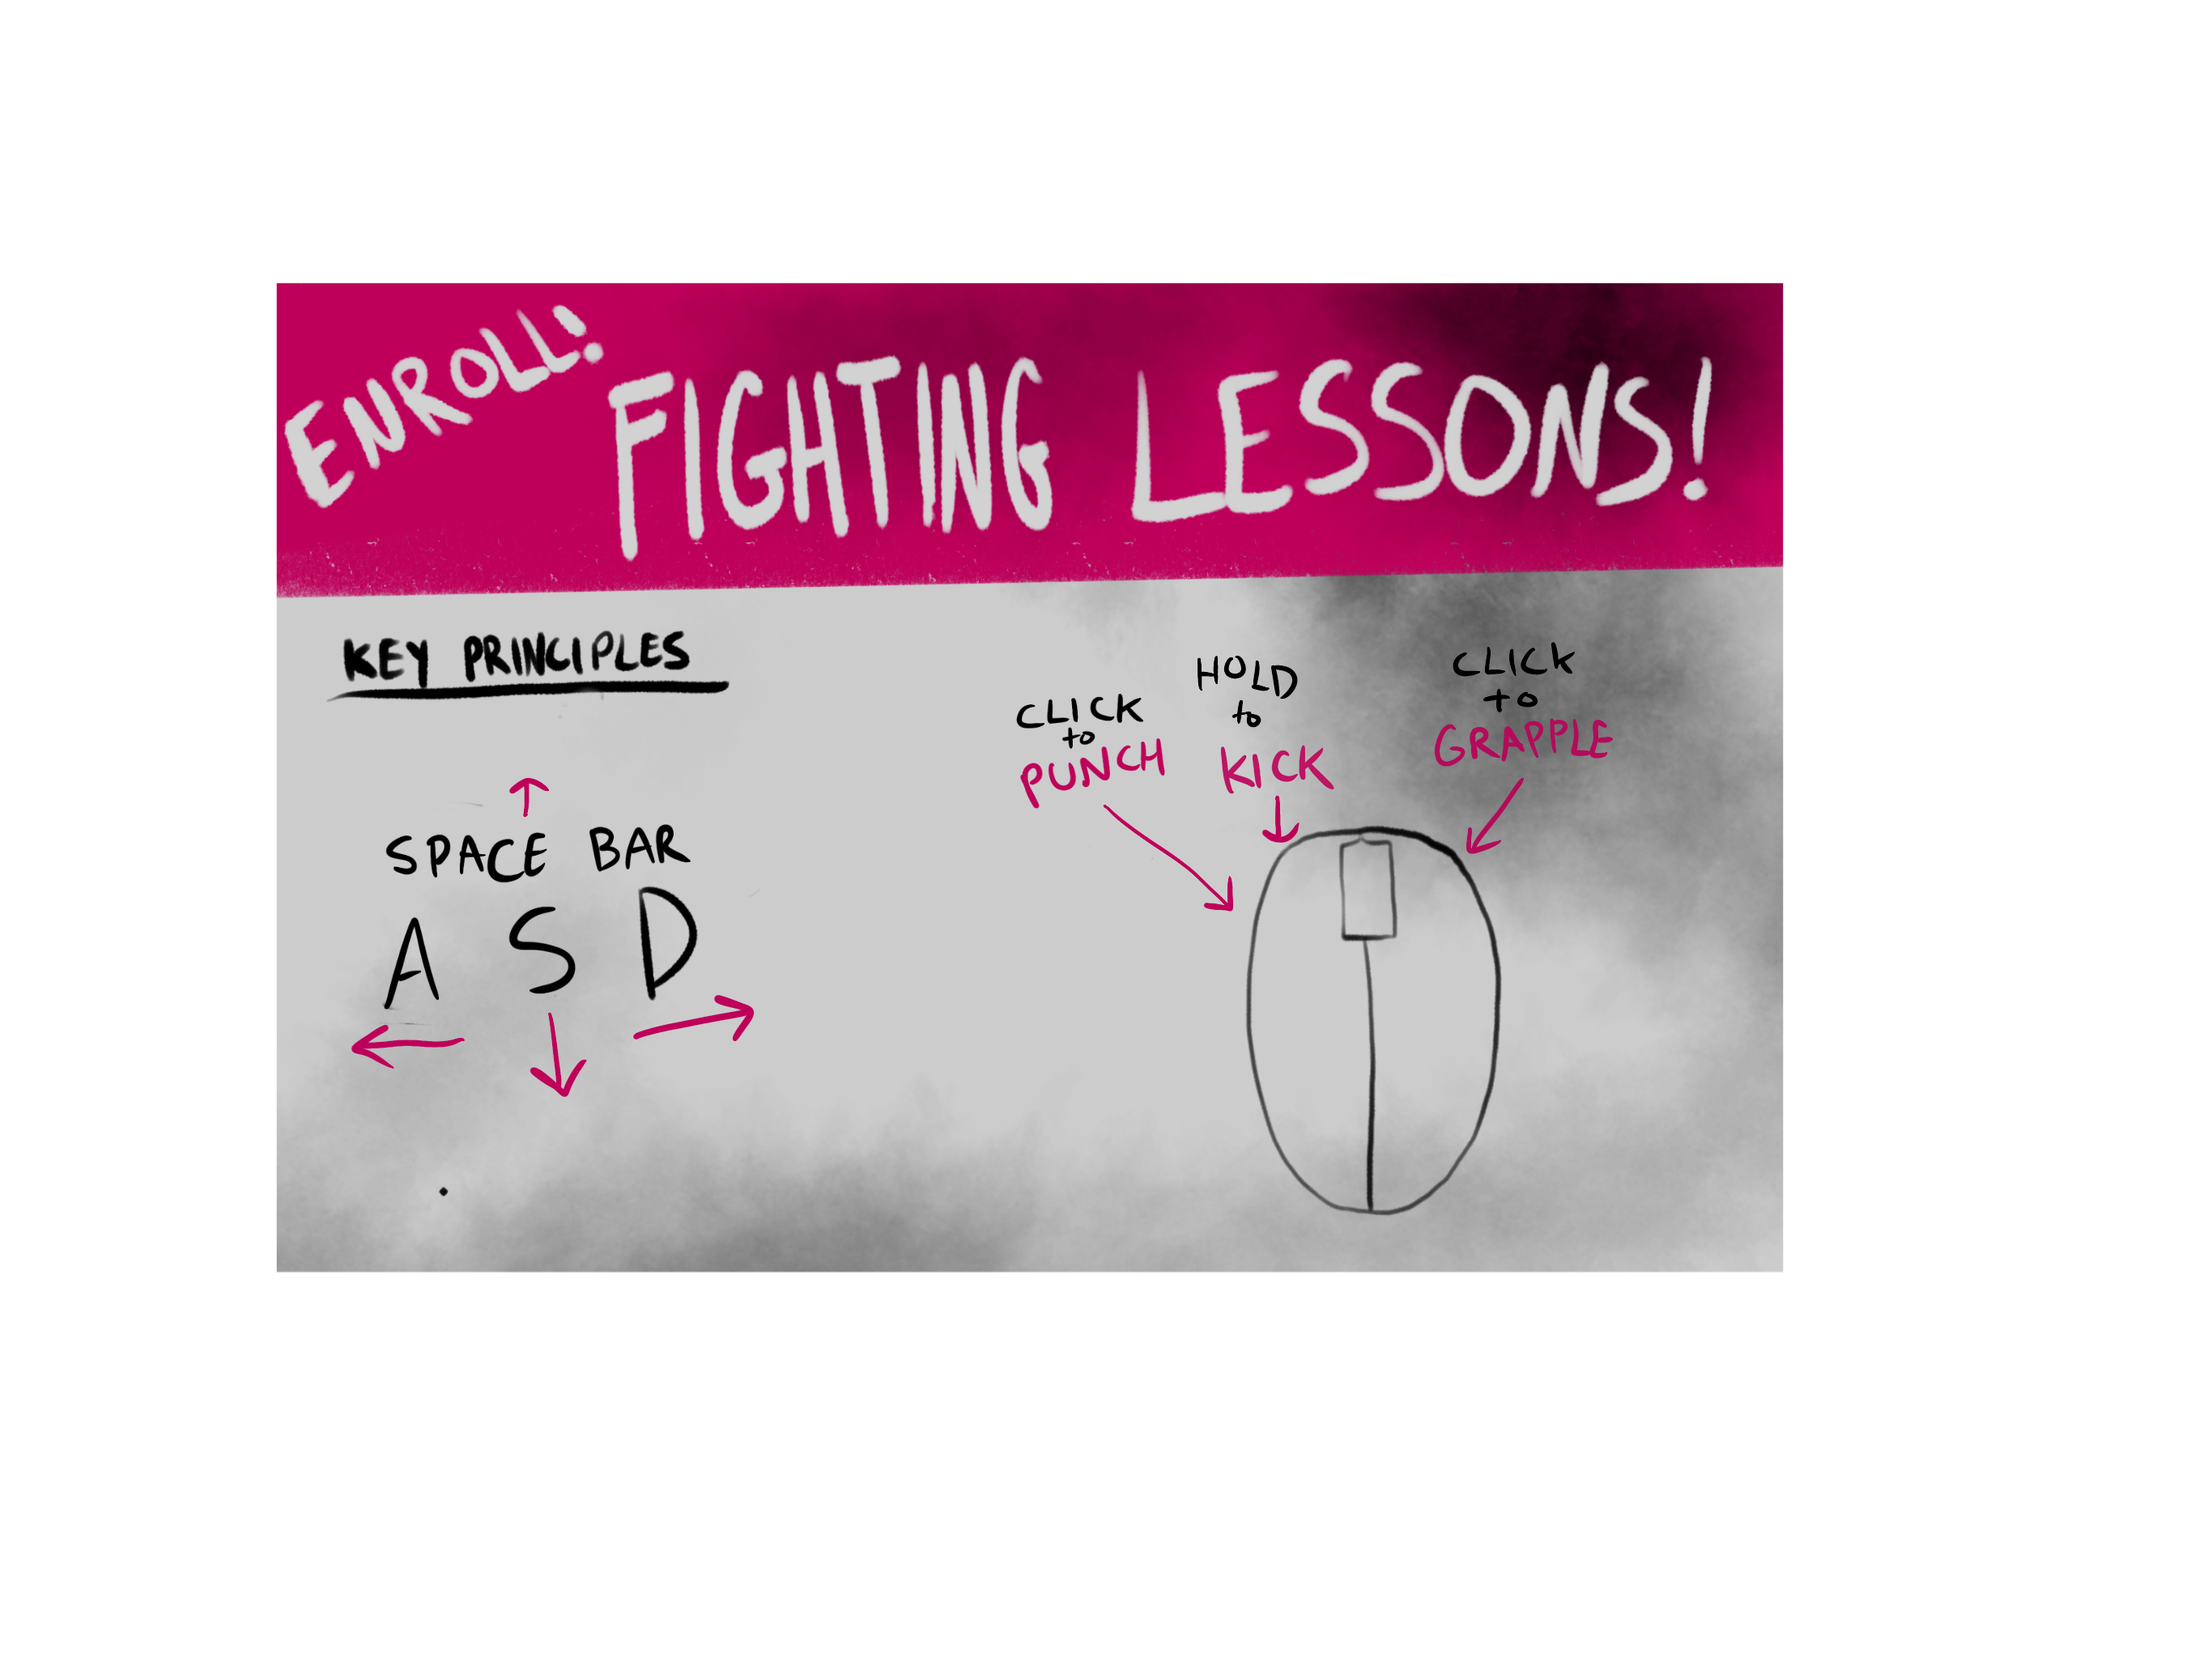 ENROLL!
FIGHTING LESSONS!
KEY PRINCIPLES
SPACE BAR
A S D
CLICK
to
PUNCH
HOLD
to
KICK
CLICK
to
GRAPPLE